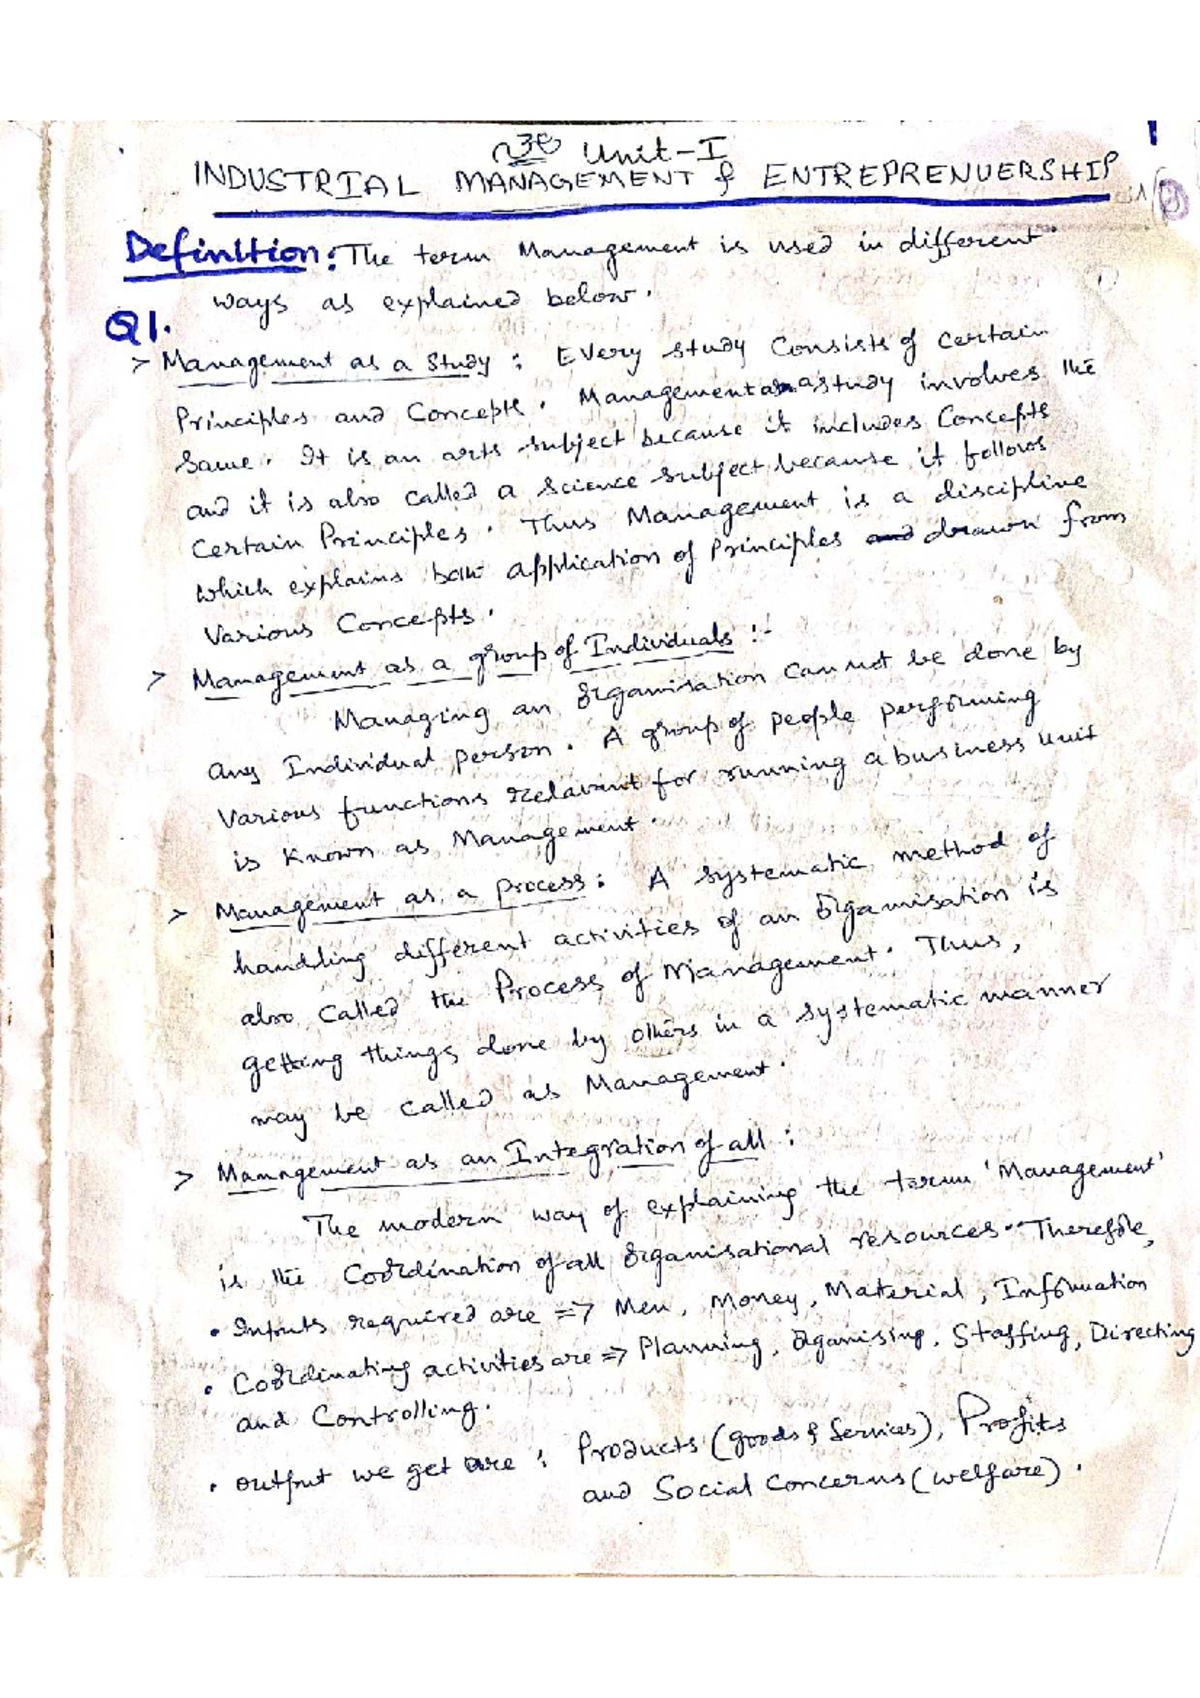 Unit-I
1
INDUSTRIAL MANAGEMENT & ENTREPRENUERSHIP
Definition: The term Management is used in different
ways as explained below.
Q1.
> Management as a Study : Every study Consists of certain
Principles and Concepts. Management as a study involves the
Same. It is an arts subject because it includes Concepts
and it is also called a Science subject because it follows
Certain Principles. Thus Management is a discipline
which explains application of Principles and drawn from
Various Concepts.
> Management as a group of Individuals :-
Managing an organisation Can not be done by
any Individual person. A group of people performing
Various functions relavant for running a business unit
is Known as Management.
> Management as a process: A systematic method of
handling different activities of an organisation is
also called the Process of Management. Thus,
getting things done by others in a systematic manner
may be called as Management.
> Management as an Integration of all :
The modern way of explaining the term 'Management'
is the Coordination of all organisational resources. Therefore,
• Inputs required are => Men, Money, Material, Information
• Coordinating activities are => Planning, organising, Staffing, Directing
and Controlling.
• output we get are : Products (goods & Services), Profits
and Social Concerns (welfare).